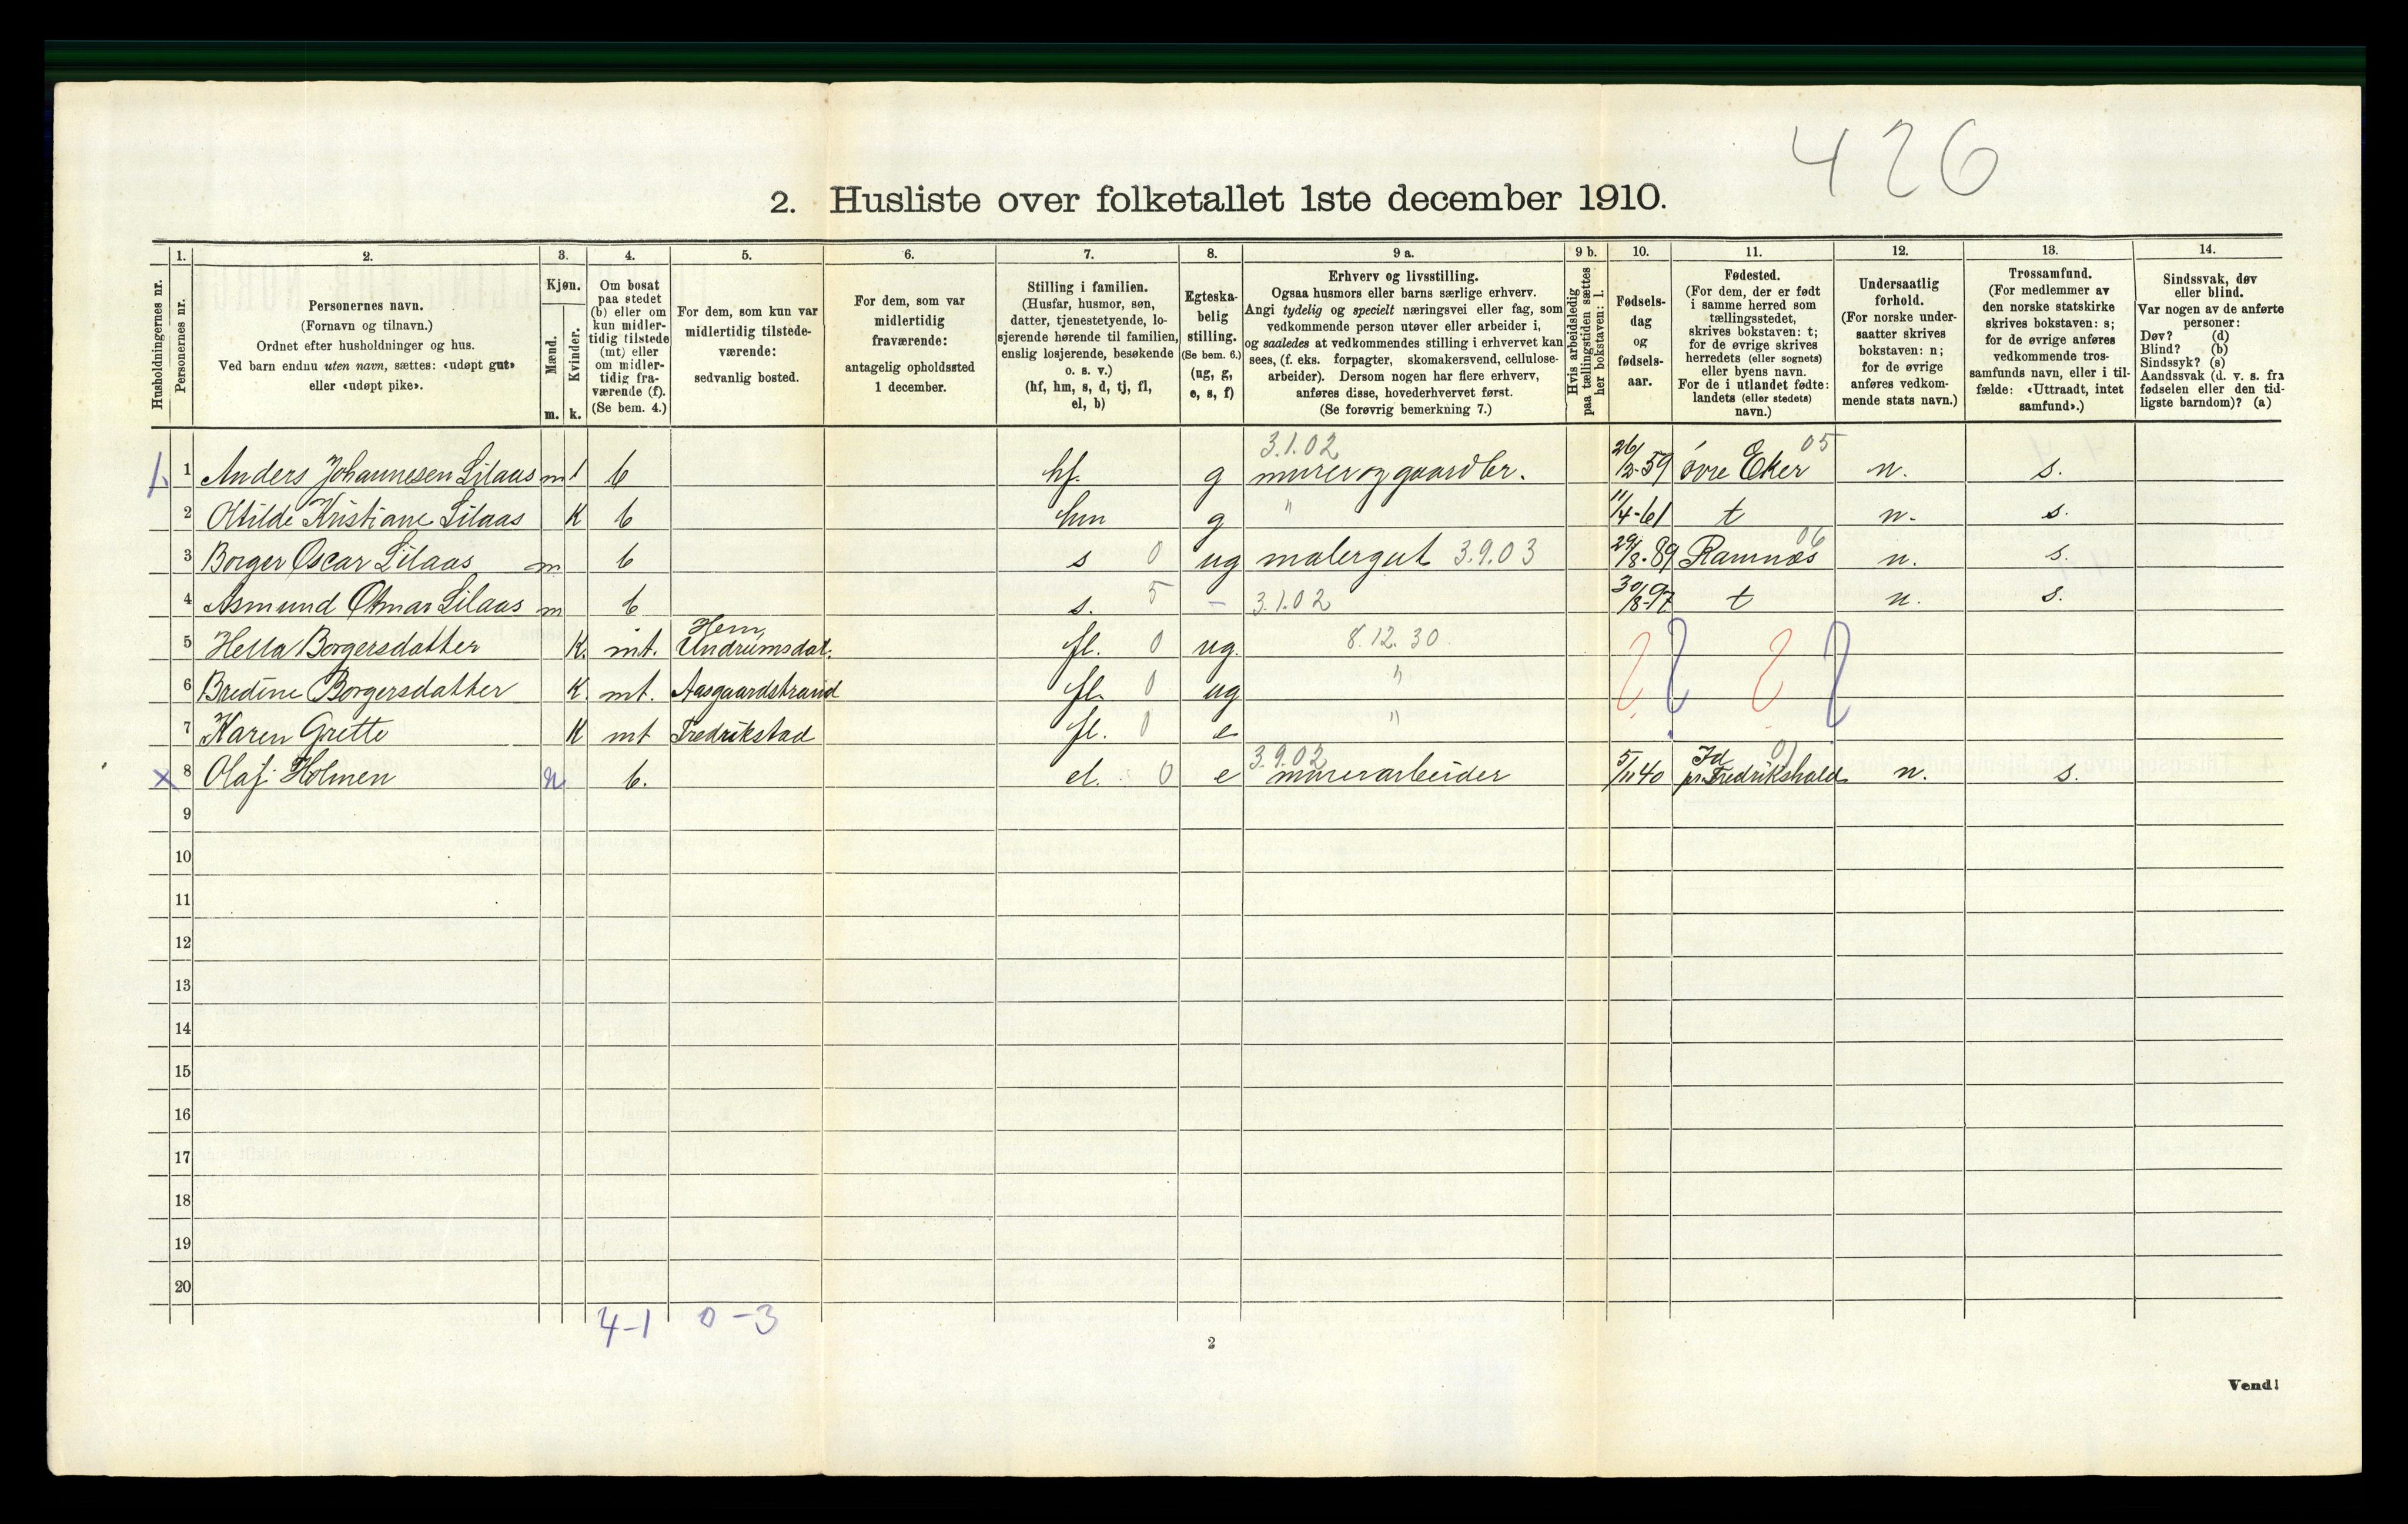 426
2. Husliste over folketallet 1ste december 1910.
Husholdningernes nr.
1.
Personernes nr.
2.
Personernes navn.
(Fornavn og tilnavn.)
Ordnet efter husholdninger og hus.
Ved barn endnu uten navn, sættes: «udøpt gut»
eller «udøpt pike».
3.
Kjøn.
Mænd.
m.
Kvinder.
k.
4.
Om bosat
paa stedet
(b) eller om
kun midler-
tidig tilstede
(mt) eller
om midler-
tidig fra-
værende (f).
(Se bem. 4.)
5.
For dem, som kun var
midlertidig tilstede-
værende:
sedvanlig bosted.
6.
For dem, som var
midlertidig
fraværende:
antagelig opholdssted
1 december.
7.
Stilling i familien.
(Husfar, husmor, søn,
datter, tjenestetyende, lo-
sjerende hørende til familien,
enslig losjerende, besøkende
o. s. v.)
(hf, hm, s, d, tj, fl,
el, b)
8.
Egteska-
belig
stilling.
(Se bem. 6.)
(ug, g,
e, s, f)
9 a.
Erhverv og livsstilling.
Ogsaa husmors eller barns særlige erhverv.
Angi tydelig og specielt næringsvei eller fag, som
vedkommende person utøver eller arbeider i,
og saaledes at vedkommendes stilling i erhvervet kan
sees, (f. eks. forpagter, skomakersvend, cellulose-
arbeider). Dersom nogen har flere erhverv,
anføres disse, hovederhvervet først.
(Se forøvrig bemerkning 7.)
9 b.
Hvis arbeidsledig
paa tællingstiden sættes
her bokstaven: l.
10.
Fødsels-
dag
og
fødsels-
aar.
11.
Fødested.
(For dem, der er født
i samme herred som
tællingsstedet,
skrives bokstaven: t;
for de øvrige skrives
herredets (eller sognets)
eller byens navn.
For de i utlandet fødte:
landets (eller stedets)
navn.)
12.
Undersaatlig
forhold.
(For norske under-
saatter skrives
bokstaven: n;
for de øvrige
anføres vedkom-
mende stats navn.)
13.
Trossamfund.
(For medlemmer av
den norske statskirke
skrives bokstaven: s;
for de øvrige anføres
vedkommende tros-
samfunds navn, eller i til-
fælde: «Uttraadt, intet
samfund».)
14.
Sindssvak, døv
eller blind.
Var nogen av de anførte
personer:
Døv? (d)
Blind? (b)
Sindssyk? (s)
Aandssvak (d. v. s. fra
fødselen eller den tid-
ligste barndom)? (a)
3.1.02 05
1. 1 Anders Johannesen Lilaas m 1 b hf. g murer og gaardbr. 26/12-59 øvre Eker n. s.
2 Otilde Kristiane Lilaas K b hm g " 11/4-61 t n. s.
06
3 Borger Oscar Lilaas m b s 0 ug malergut 3.9.03 29/8-89 Ramnæs n. s.
4 Asmund Otmar Lilaas m b s. 5 – 3.1.02 30/8-97 t n. s.
Hem,
5 Hella Borgersdatter K. mt. Undrumsdal. fl. 0 ug. 8.12.30 ? ? ? ?
6 Bredine Borgersdatter K. mt. Aasgaardstrand fl. 0 ug "
7 Karen Grette K mt Fredrikstad fl. 0 e "
3.9.02 Id 01
x 8 Olaf Holmen m b. el. 0 e murerarbeider 5/11 40 pr. Fredrikshald n. s.
9
10
11
12
13
14
15
16
17
18
19
20
4-1 0-3
2
Vend!